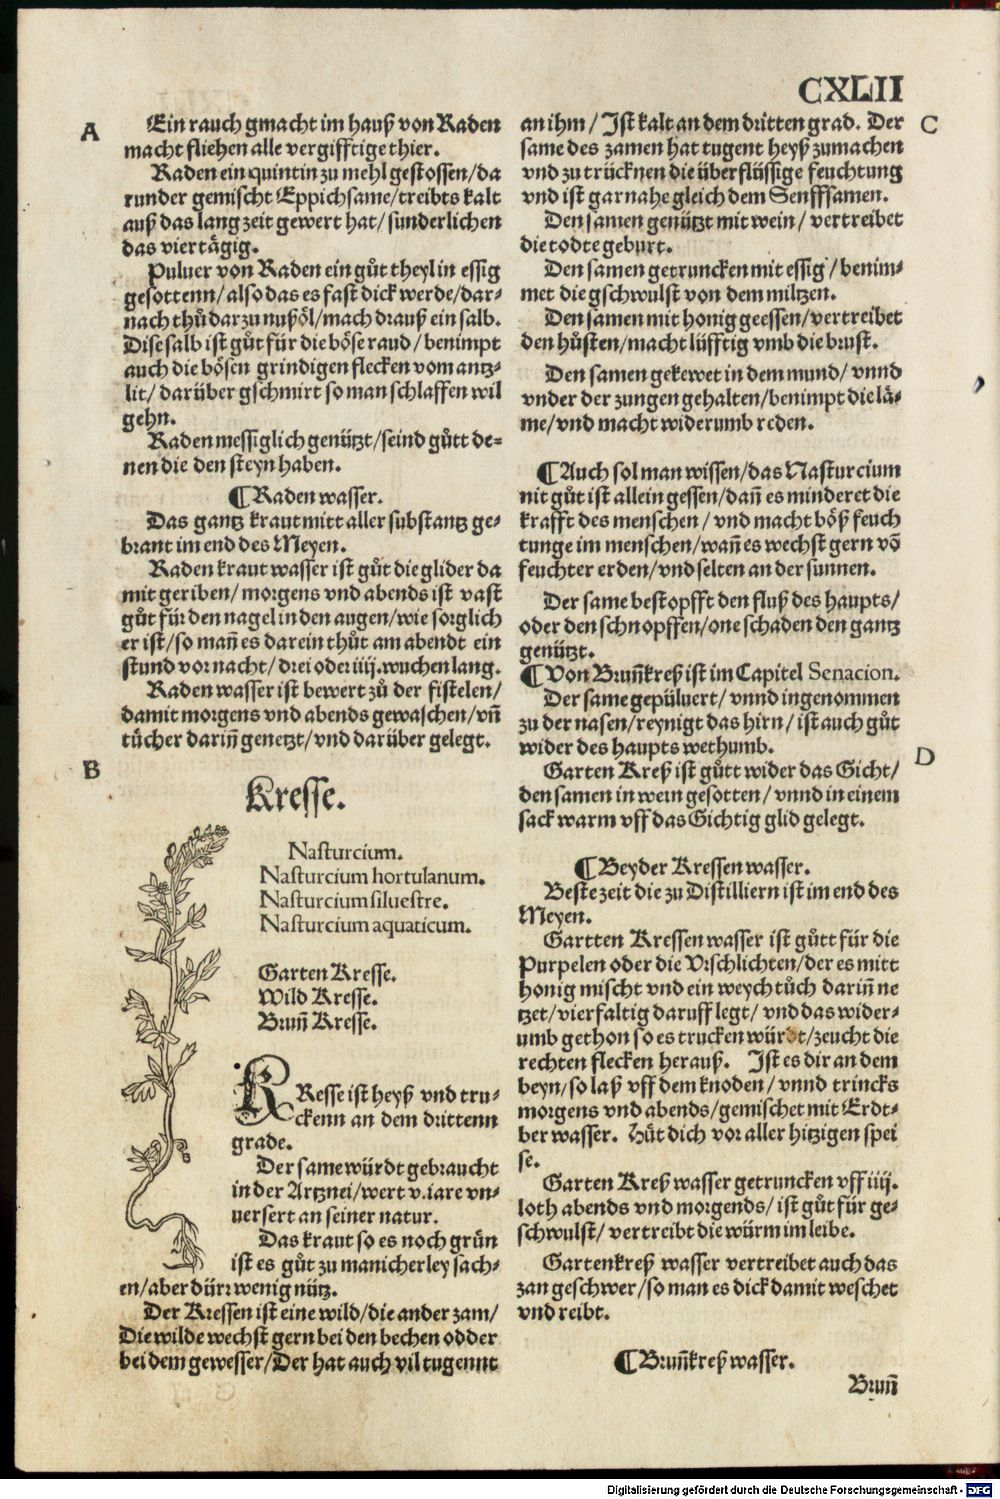 CXLII
A
Ein rauch gmacht im hauß von Raden
macht fliehen alle vergifftige thier.
Raden ein quintin zu mehl gestossen/da
runder gemischt Eppichsame/treibts kalt
auß das lang zeit gewert hat/sunderlichen
das viertägig.
Puluer von Raden ein gůt theyl in essig
gesottenn/also das es fast dick werde/dar-
nach thů darzu nußöl/mach drauß ein salb.
Dise salb ist gůt für die böse raud/benimpt
auch die bösen grindigen flecken vom antz-
lit/darüber gschmirt so man schlaffen wil
gehn.
Raden messiglich genützt/seind gůtt de-
nen die den steyn haben.
¶Raden wasser.
Das gantz kraut mitt aller substantz ge-
brant im end des Meyen.
Raden kraut wasser ist gůt die glider da
mit geriben/morgens vnd abends ist vast
gůt für den nagel in den augen/wie sorglich
er ist/so mañ es darein thůt am abendt ein
stund vor nacht/drei oder iiij.wuchen lang.
Raden wasser ist bewert zů der fistelen/
damit morgens vnd abends gewaschen/vñ
tücher dariñ genetzt/vnd darüber gelegt.
B
Kresse.
Nasturcium.
Nasturcium hortulanum.
Nasturcium siluestre.
Nasturcium aquaticum.
Garten Kresse.
Wild Kresse.
Bruñ Kresse.
KResse ist heyß vnd tru-
ckenn an dem drittenn
grade.
Der same würdt gebraucht
in der Artznei/wert v.iare vn-
uersert an seiner natur.
Das kraut so es noch grün
ist es gůt zu manicherley sach-
en/aber dürr wenig nütz.
Der Kressen ist eine wild/die ander zam/
Die wilde wechst gern bei den bechen odder
bei dem gewesser/Der hat auch vil tugennt
C
an ihm/Ist kalt an dem dritten grad. Der
same des zamen hat tugent heyß zumachen
vnd zu trücknen die überflüssige feuchtung
vnd ist gar nahe gleich dem Senffsamen.
Den samen genützt mit wein/vertreibet
die todte geburt.
Den samen getruncken mit essig/benim-
met die gschwulst von dem miltzen.
Den samen mit honig geessen/vertreibet
den hůsten/macht lüfftig vmb die brust.
Den samen gekewet in dem mund/vnnd
vnder der zungen gehalten/benimpt die lä-
me/vnd macht widerumb reden.
¶Auch sol man wissen/das Nasturcium
nit gůt ist allein gessen/dañ es minderet die
krafft des menschen/vnd macht böß feuch
tunge im menschen/wañ es wechst gern võ
feuchter erden/vnd selten an der sunnen.
Der same bestopfft den fluß des haupts/
oder den schnopffen/one schaden den gantz
genützt.
¶Von Bruñkreß ist im Capitel Senacion.
Der same gepüluert/vnnd ingenommen
zu der nasen/reynigt das hirn/ist auch gůt
wider des haupts wethumb.
D
Garten Kreß ist gůtt wider das Gicht/
den samen in wein gesotten/vnnd in einem
sack warm vff das Gichtig glid gelegt.
¶Beyder Kressen wasser.
Beste zeit die zu Distilliern ist im end des
Meyen.
Gartten Kressen wasser ist gůtt für die
Purpelen oder die Vrschlichten/der es mitt
honig mischt vnd ein weych tůch dariñ ne
tzet/vierfaltig daruff legt/vnd das wider-
umb gethon so es trucken würdt/zeucht die
rechten flecken herauß. Ist es dir an dem
beyn/so laß vff dem knoden/vnnd trincks
morgens vnd abends/gemischet mit Erdt-
ber wasser. Hüt dich vor aller hitzigen spei
se.
Garten Kreß wasser getruncken vff iiij.
loth abends vnd morgends/ist gůt für ge-
schwulst/vertreibt die würm im leibe.
Gartenkreß wasser vertreibet auch das
zan geschwer/so man es dick damit weschet
vnd reibt.
¶Bruñkreß wasser.
Bruñ
Digitalisierung gefördert durch die Deutsche Forschungsgemeinschaft - DFG